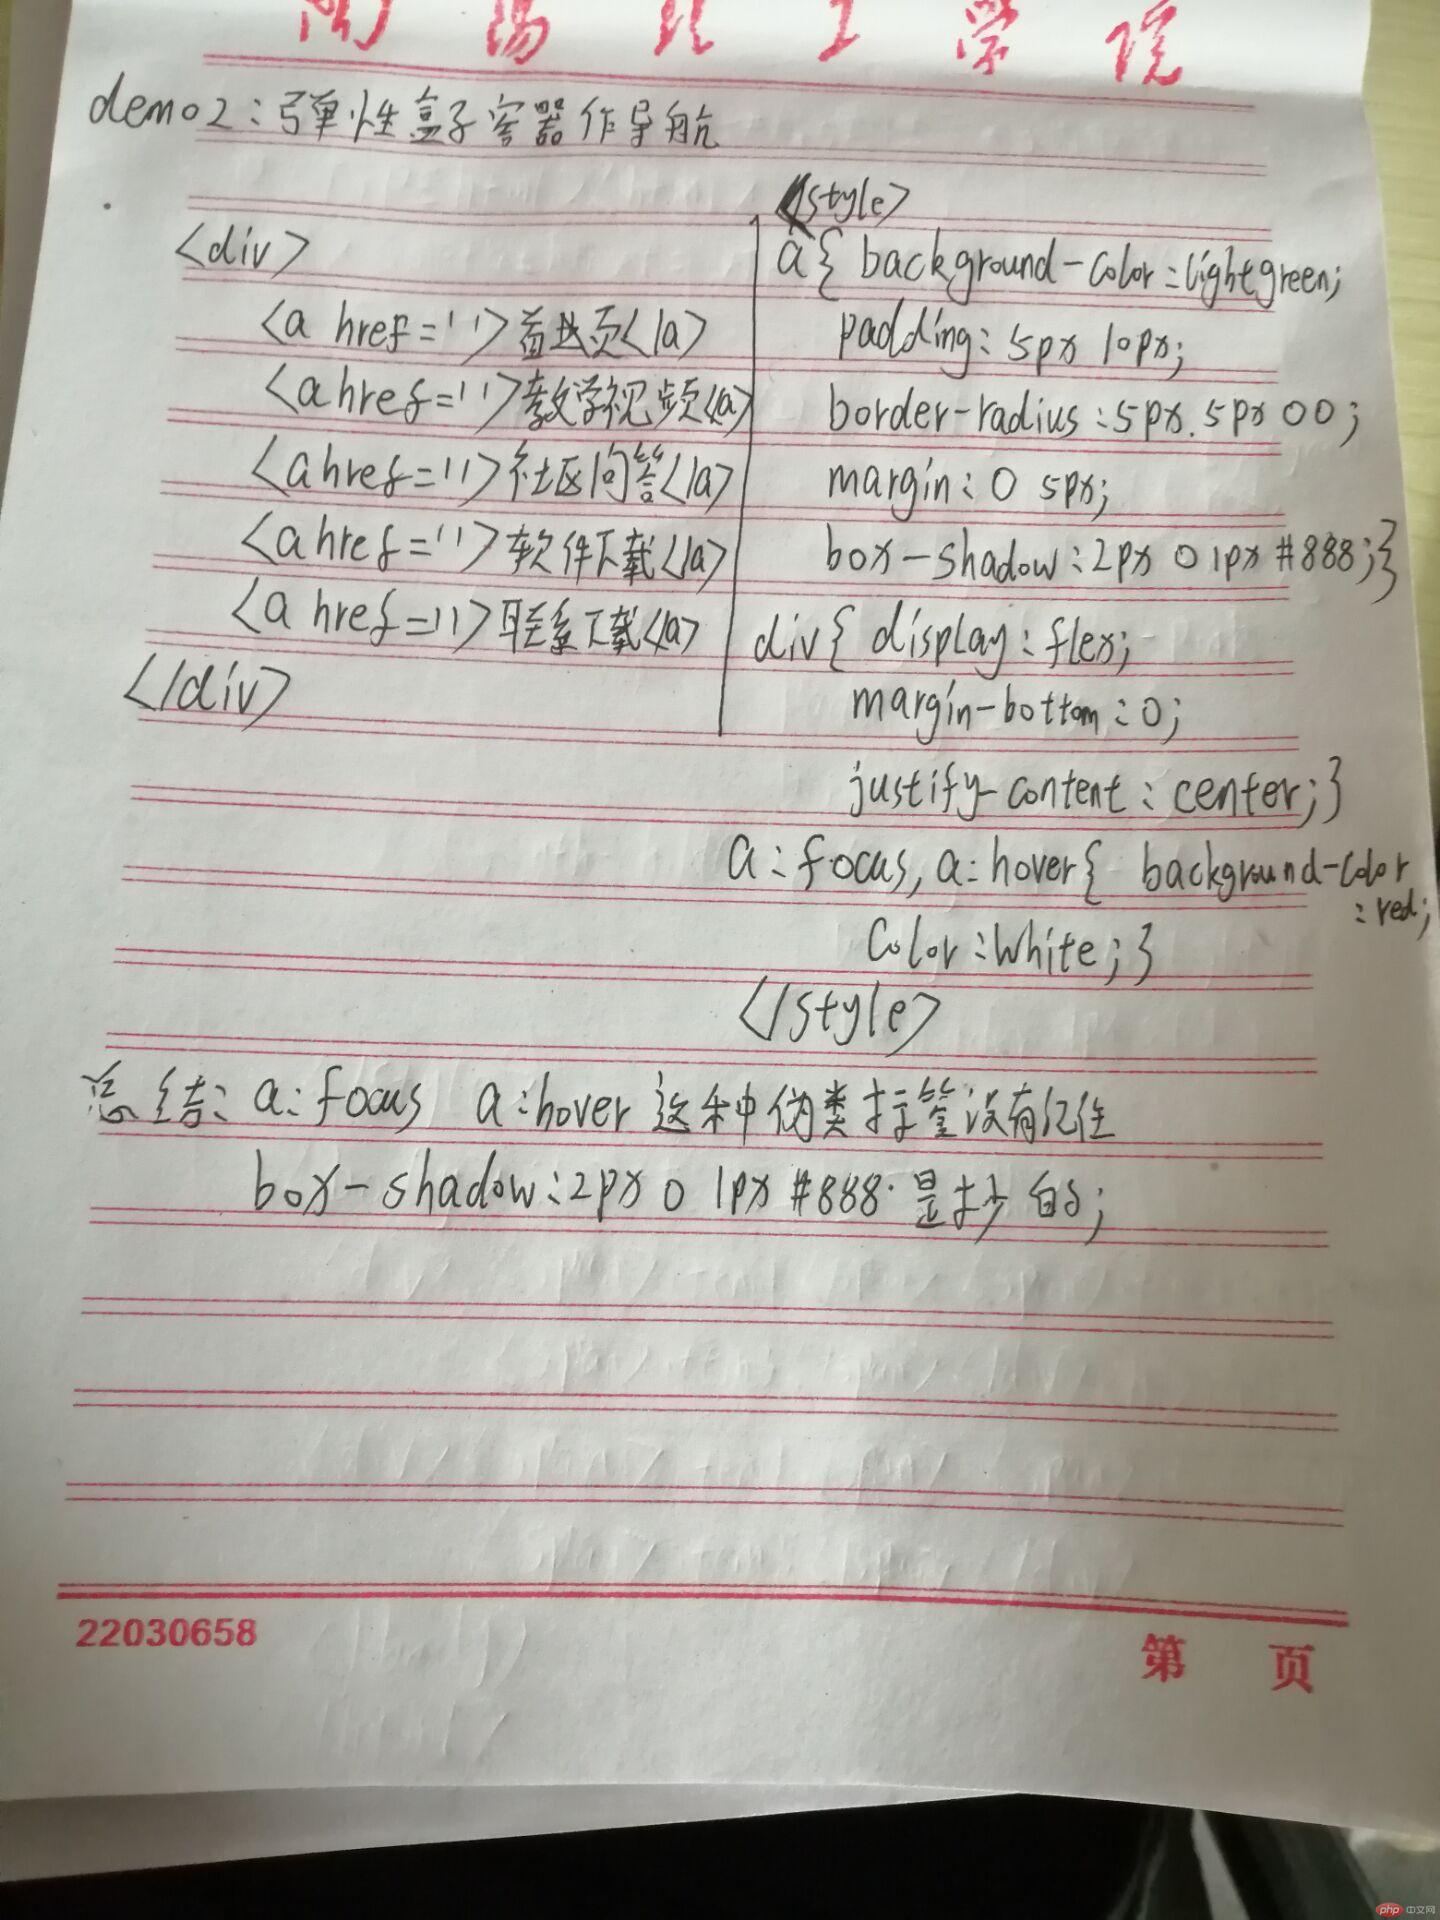 阳 理 工 学 院
demo2:弹性盒子容器作导航
<div>
<a href=''>首页</a>
<a href=''>教学视频</a>
<a href=''>社区问答</a>
<a href=''>软件下载</a>
<a href=''>联系下载</a>
</div>
<style>
a{ background-color:lightgreen;
padding: 5px 10px;
border-radius:5px 5px 0 0;
margin: 0 5px;
box-shadow:2px 0 1px #888;}
div{ display:flex;
margin-bottom:0;
justify-content:center;}
a:focus, a:hover{ background-color
:red;
color:white;}
</style>
总结: a:focus a:hover 这种伪类标签没有记住
box-shadow:2px 0 1px #888.是抄的;
22030658
第 页
php 中文网